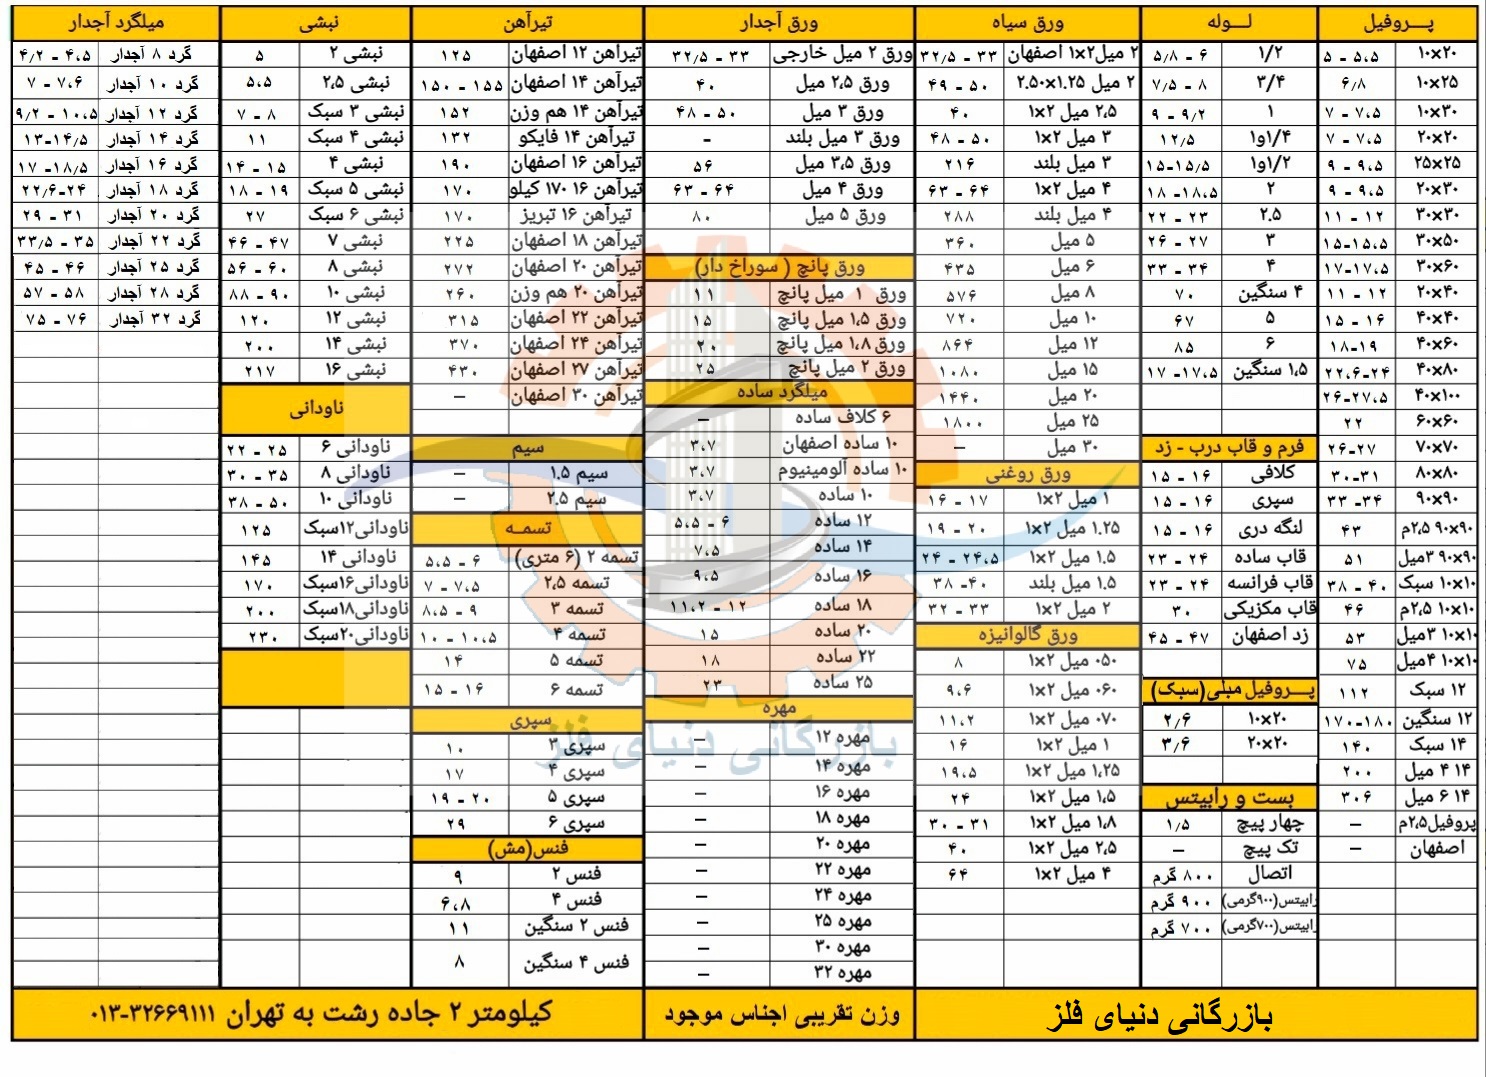 پـــروفیل
۱۰×۲۰ ۵ - ۵،۵
۱۰×۲۵ ۶٫۸
۱۰×۳۰ ۷ - ۷،۵
۲۰×۲۰ ۷ - ۷،۵
۲۵×۲۵ ۹ - ۹،۵
۲۰×۳۰ ۹ - ۹،۵
۳۰×۳۰ ۱۱ - ۱۲
۳۰×۵۰ ۱۵-۱۵،۵
۳۰×۶۰ ۱۷-۱۷،۵
۲۰×۴۰ ۱۱ - ۱۲
۴۰×۴۰ ۱۵ - ۱۶
۴۰×۶۰ ۱۸-۱۹
۴۰×۸۰ ۲۲،۶-۲۴
۴۰×۱۰۰ ۲۶-۲۷،۵
۶۰×۶۰ ۲۲
۷۰×۷۰ ۲۶-۲۷
۸۰×۸۰ ۳۰-۳۱
۹۰×۹۰ ۳۳ -۳۴
۹۰×۹۰ ۲،۵م ۴۳
۹۰×۹۰ ۳میل ۵۱
۱۰×۱۰ سبک ۳۸ - ۴۰
۱۰×۱۰ ۲،۵م ۴۶
۱۰×۱۰ ۳میل ۵۳
۱۰×۱۰ ۴میل ۷۵
۱۲ سبک ۱۱۲
۱۲ سنگین ۱۷۰-۱۸۰
۱۴ سبک ۱۴۰
۱۴ ۴ میل ۲۰۰
۱۴ ۶ میل ۳۰۶
پروفیل۲،۵م –
اصفهان –
لـــوله
۱/۲ ۵/۸ - ۶
۳/۴ ۷/۵ - ۸
۱ ۹ - ۹/۲
۱/۴و۱ ۱۲٫۵
۱/۲و۱ ۱۵-۱۵٫۵
۲ ۱۸ -۱۸،۵
۲.۵ ۲۲ - ۲۳
۳ ۲۶ - ۲۷
۴ ۳۳ - ۳۴
۴ سنگین ۷۰
۵ ۶۷
۶ ۸۵
۱،۵ سنگین ۱۷ -۱۷،۵
فرم و قاب درب - زد
کلافی ۱۵ - ۱۶
سپری ۱۵ - ۱۶
لنگه دری ۱۵ - ۱۶
قاب ساده ۲۳ - ۲۴
قاب فرانسه ۲۳ - ۲۴
قاب مکزیکی ۳۰
زد اصفهان ۴۵ - ۴۷
پـــروفیل مبلی(سبک)
۱۰×۲۰ ۲٫۶
۲۰×۲۰ ۳٫۶
بست و رابیتس
چهار پیچ ۱٫۵
تک پیچ –
اتصال ۸۰۰ گرم
رابیتس(۹۰۰گرمی) ۹۰۰ گرم
رابیتس(۷۰۰گرمی) ۷۰۰ گرم
ورق سیاه
۲ میل۲×۱ اصفهان ۳۲/۵ - ۳۳
۲ میل ۱.۲۵×۲.۵۰ ۴۹ - ۵۰
۲،۵ میل ۲×۱ ۴۰
۳ میل ۲×۱ ۴۸ - ۵۰
۳ میل بلند ۲۱۶
۴ میل ۲×۱ ۶۳ - ۶۴
۴ میل بلند ۲۸۸
۵ میل ۳۶۰
۶ میل ۴۳۵
۸ میل ۵۷۶
۱۰ میل ۷۲۰
۱۲ میل ۸۶۴
۱۵ میل ۱۰۸۰
۲۰ میل ۱۴۴۰
۲۵ میل ۱۸۰۰
۳۰ میل –
ورق روغنی
۱ میل ۲×۱ ۱۶ - ۱۷
۱.۲۵ میل ۲×۱ ۱۹ - ۲۰
۱.۵ میل ۲×۱ ۲۴ - ۲۴،۵
۱.۵ میل بلند ۳۸ -۴۰
۲ میل ۲×۱ ۳۲ - ۳۳
ورق گالوانیزه
۰۵۰ میل ۲×۱ ۸
۰۶۰ میل ۲×۱ ۹،۶
۰۷۰ میل ۲×۱ ۱۱،۲
۱ میل ۲×۱ ۱۶
۱،۲۵ میل ۲×۱ ۱۹،۵
۱،۵ میل ۲×۱ ۲۴
۱،۸ میل ۲×۱ ۳۰ - ۳۱
۲،۵ میل ۲×۱ ۴۰
۴ میل ۲×۱ ۶۴
ورق آجدار
ورق ۲ میل خارجی ۳۲٫۵ - ۳۳
ورق ۲،۵ میل ۴۰
ورق ۳ میل ۴۸ - ۵۰
ورق ۳ میل بلند –
ورق ۳،۵ میل ۵۶
ورق ۴ میل ۶۳ - ۶۴
ورق ۵ میل ۸۰
ورق پانچ ( سوراخ دار)
ورق ۱ میل پانچ ۱۱
ورق ۱،۵ میل پانچ ۱۵
ورق ۱،۸ میل پانچ ۲۰
ورق ۲ میل پانچ ۲۵
میلگرد ساده
۶ کلاف ساده –
۱۰ ساده اصفهان ۳،۷
۱۰ ساده آلومینیوم ۳،۷
۱۰ ساده ۳،۷
۱۲ ساده ۵،۵ - ۶
۱۴ ساده ۷،۵
۱۶ ساده ۹،۵
۱۸ ساده ۱۱،۲ - ۱۲
۲۰ ساده ۱۵
۲۲ ساده ۱۸
۲۵ ساده ۲۳
مهره
مهره ۱۲ –
مهره ۱۴ –
مهره ۱۶ –
مهره ۱۸ –
مهره ۲۰ –
مهره ۲۲ –
مهره ۲۴ –
مهره ۲۵ –
مهره ۳۰ –
مهره ۳۲ –
تیرآهن
تیرآهن ۱۲ اصفهان ۱۲۵
تیرآهن ۱۴ اصفهان ۱۵۰ - ۱۵۵
تیرآهن ۱۴ هم وزن ۱۵۲
تیرآهن ۱۴ فایکو ۱۳۲
تیرآهن ۱۶ اصفهان ۱۹۰
تیرآهن ۱۶ ۱۷۰ کیلو ۱۷۰
تیرآهن ۱۶ تبریز ۱۷۰
تیرآهن ۱۸ اصفهان ۲۲۵
تیرآهن ۲۰ اصفهان ۲۷۲
تیرآهن ۲۰ هم وزن ۲۶۰
تیرآهن ۲۲ اصفهان ۳۱۵
تیرآهن ۲۴ اصفهان ۳۷۰
تیرآهن ۲۷ اصفهان ۴۳۰
تیرآهن ۳۰ اصفهان –
سیم
سیم ۱.۵ –
سیم ۲.۵ –
تسمـه
تسمه ۲ (۶ متری) ۵،۵ - ۶
تسمه ۲،۵ ۷ - ۷،۵
تسمه ۳ ۸،۵ - ۹
تسمه ۴ ۱۰ - ۱۰،۵
تسمه ۵ ۱۴
تسمه ۶ ۱۵ - ۱۶
سپری
سپری ۳ ۱۰
سپری ۴ ۱۷
سپری ۵ ۱۹ - ۲۰
سپری ۶ ۲۹
فنس(مش)
فنس ۲ ۹
فنس ۴ ۶،۸
فنس ۲ سنگین ۱۱
فنس ۴ سنگین ۸
نبشی
نبشی ۲ ۵
نبشی ۲،۵ ۵،۵
نبشی ۳ سبک ۷ - ۸
نبشی ۴ سبک ۱۱
نبشی ۴ ۱۴ - ۱۵
نبشی ۵ سبک ۱۸ - ۱۹
نبشی ۶ سبک ۲۷
نبشی ۷ ۴۶ - ۴۷
نبشی ۸ ۵۶ - ۶۰
نبشی ۱۰ ۸۸ - ۹۰
نبشی ۱۲ ۱۲۰
نبشی ۱۴ ۲۰۰
نبشی ۱۶ ۲۱۷
ناودانی
ناودانی ۶ ۲۲ - ۲۵
ناودانی ۸ ۳۰ - ۳۵
ناودانی ۱۰ ۳۸ - ۵۰
ناودانی۱۲سبک ۱۲۵
ناودانی ۱۴ ۱۴۵
ناودانی۱۶سبک ۱۷۰
ناودانی۱۸سبک ۲۰۰
ناودانی۲۰سبک ۲۳۰
میلگرد آجدار
گرد ۸ آجدار ۴/۲ - ۴،۵
گرد ۱۰ آجدار ۷ - ۷،۶
گرد ۱۲ آجدار ۹/۲ - ۱۰،۵
گرد ۱۴ آجدار ۱۳-۱۴٫۵
گرد ۱۶ آجدار ۱۷ -۱۸٫۵
گرد ۱۸ آجدار ۲۲٫۶-۲۴
گرد ۲۰ آجدار ۲۹ - ۳۱
گرد ۲۲ آجدار ۳۳٫۵ - ۳۵
گرد ۲۵ آجدار ۴۵ - ۴۶
گرد ۲۸ آجدار ۵۷ - ۵۸
گرد ۳۲ آجدار ۷۵ - ۷۶
بازرگانی دنیای فلز
بازرگانی دنیای فلز
وزن تقریبی اجناس موجود
کیلومتر ۲ جاده رشت به تهران ۳۲۶۶۹۱۱۱-۰۱۳